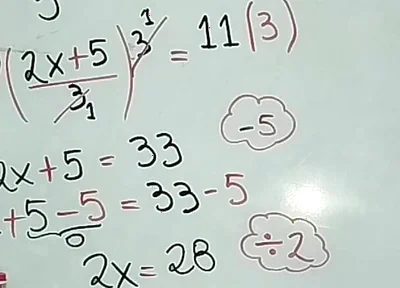 (2x+5/3)3 1 = 11(3)
1
2x+5 = 33
-5
+5-5 = 33-5
0
2x = 28
÷2